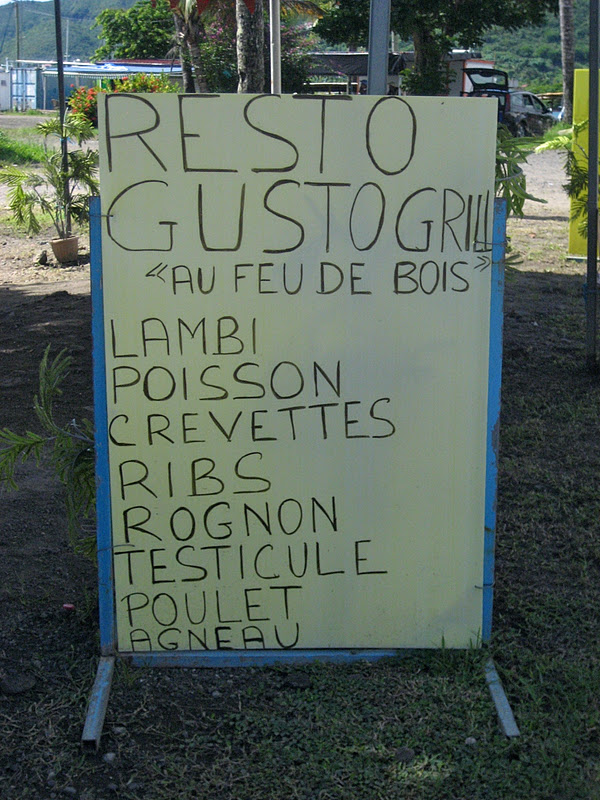 RESTO
GUSTOGRILL
"AU FEU DE BOIS"
LAMBI
POISSON
CREVETTES
RIBS
ROGNON
TESTICULE
POULET
AGNEAU